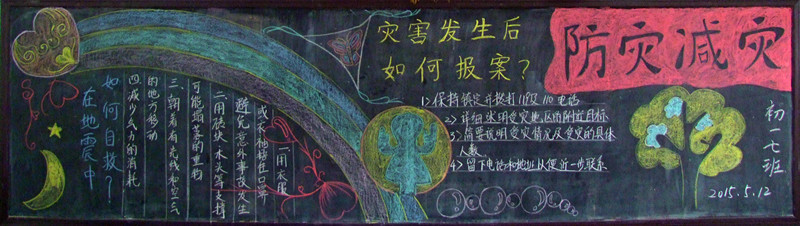 防灾减灾
灾害发生后
如何报案？
1>保持镇定并拨打119及110电话
2>详细说明受灾地区而附近目标
3>简要说明受灾情况及受灾的具体
人数
4>留下电话和地址以便近一步联系
初一七班
2015.5.12
在地震中
如何自救？
一用衣服
或衣袖捂住口鼻
避免意外事故发生
二用砖块木头等支撑
可能塌落的重物
三、朝着有光线和空气
的地方移动
四减少人力的消耗